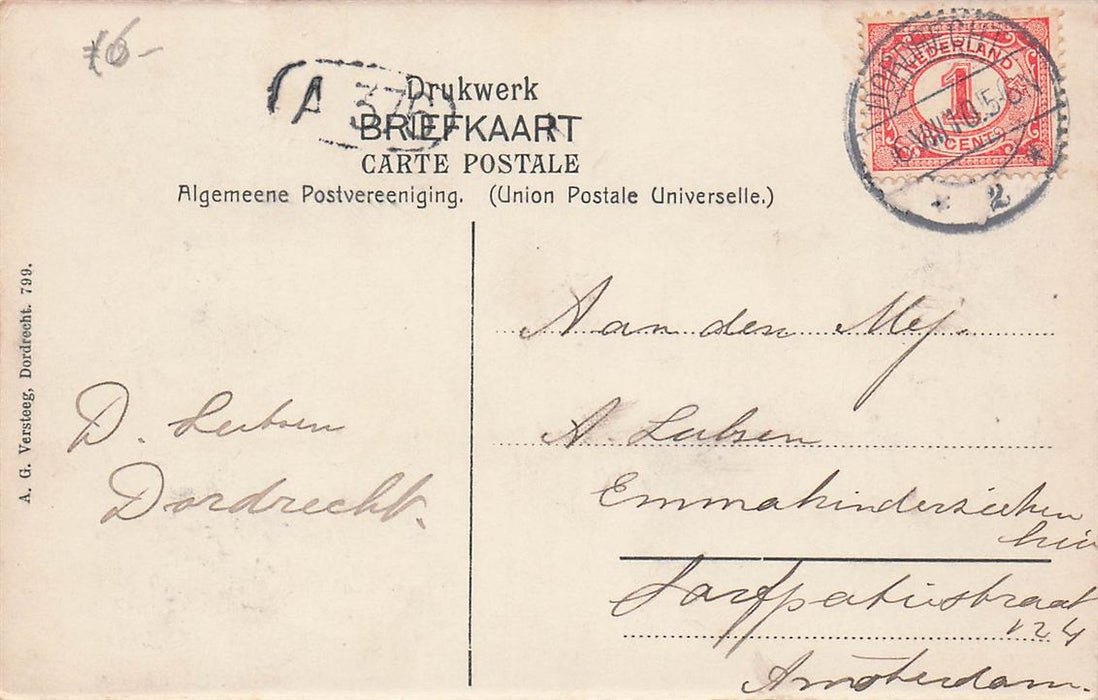 16-
A 376
Drukwerk
BRIEFKAART
CARTE POSTALE
Algemeene Postvereeniging. (Union Postale Universelle.)
DORDRECHT
VIII 10.5-6
2
NEDERLAND
1
CENT
A. G. Versteeg, Dordrecht. 799.
D. Lubsen
Dordrecht.
Aan den Mej.
A. Lubsen
Emmakinderzieken
huis
Sarfpatiestraat
124
Amsterdam.